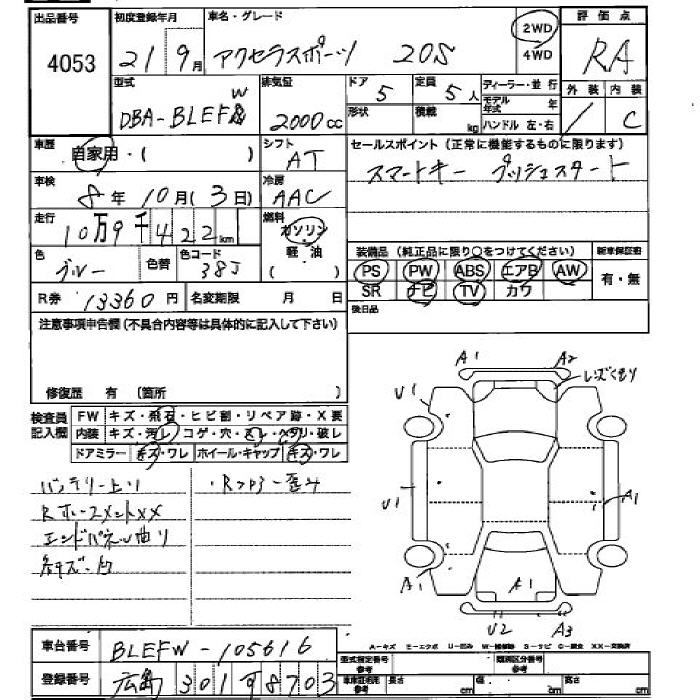 出品番号 初度登録年月 車名・グレード 2WD 評価点
4053 21 9月 アクセラスポーツ 20S 4WD RA
型式 排気量 ドア 定員 ディーラー・並行 外装 内装
DBA-BLEFW 2000cc 5 5人 モデル年式 年
形状 積載 kg ハンドル 左・右 C
車歴 自家用・( ) シフト AT セールスポイント (正常に機能するものに限ります)
車検 8年10月(3日) 冷房 AAC スマートキー プッシュスタート
走行 10万9千422km 燃料 ガソリン 軽油 ( )
装備品 (純正品に限り○をつけてください) 新車保証書
色 ブルー 色替 色コード 38J PS PW ABS エアB AW 有・無
R券 13360円 名変期限 月 日 SR ナビ TV カワ
後日品
注意事項申告欄 (不具合内容等は具体的に記入して下さい)
修復歴 有 (箇所 )
検査員記入欄 FW キズ・飛石・ヒビ割・リペア跡・X要
内装 キズ・汚レ・コゲ・穴・スレ・ヘタリ・破レ
ドアミラー キズ・ワレ ホイール・キャップ キズ・ワレ
バッテリー上り ・Rフロアー歪み
RホースメントXX
エンドパネル曲り
A1 A2
レンズくもり
U1
U1 A1
A1 A1
U2 A3
A-キズ E-エクボ U-凹み W-補修跡 S-サビ C-腐食 XX-交換済
車台番号 BLEFW-105616
型式指定番号 参考 類別区分番号 参考
登録番号 広島 301 8703 車庫証明用 参考 長さ cm 幅 cm 高さ cm